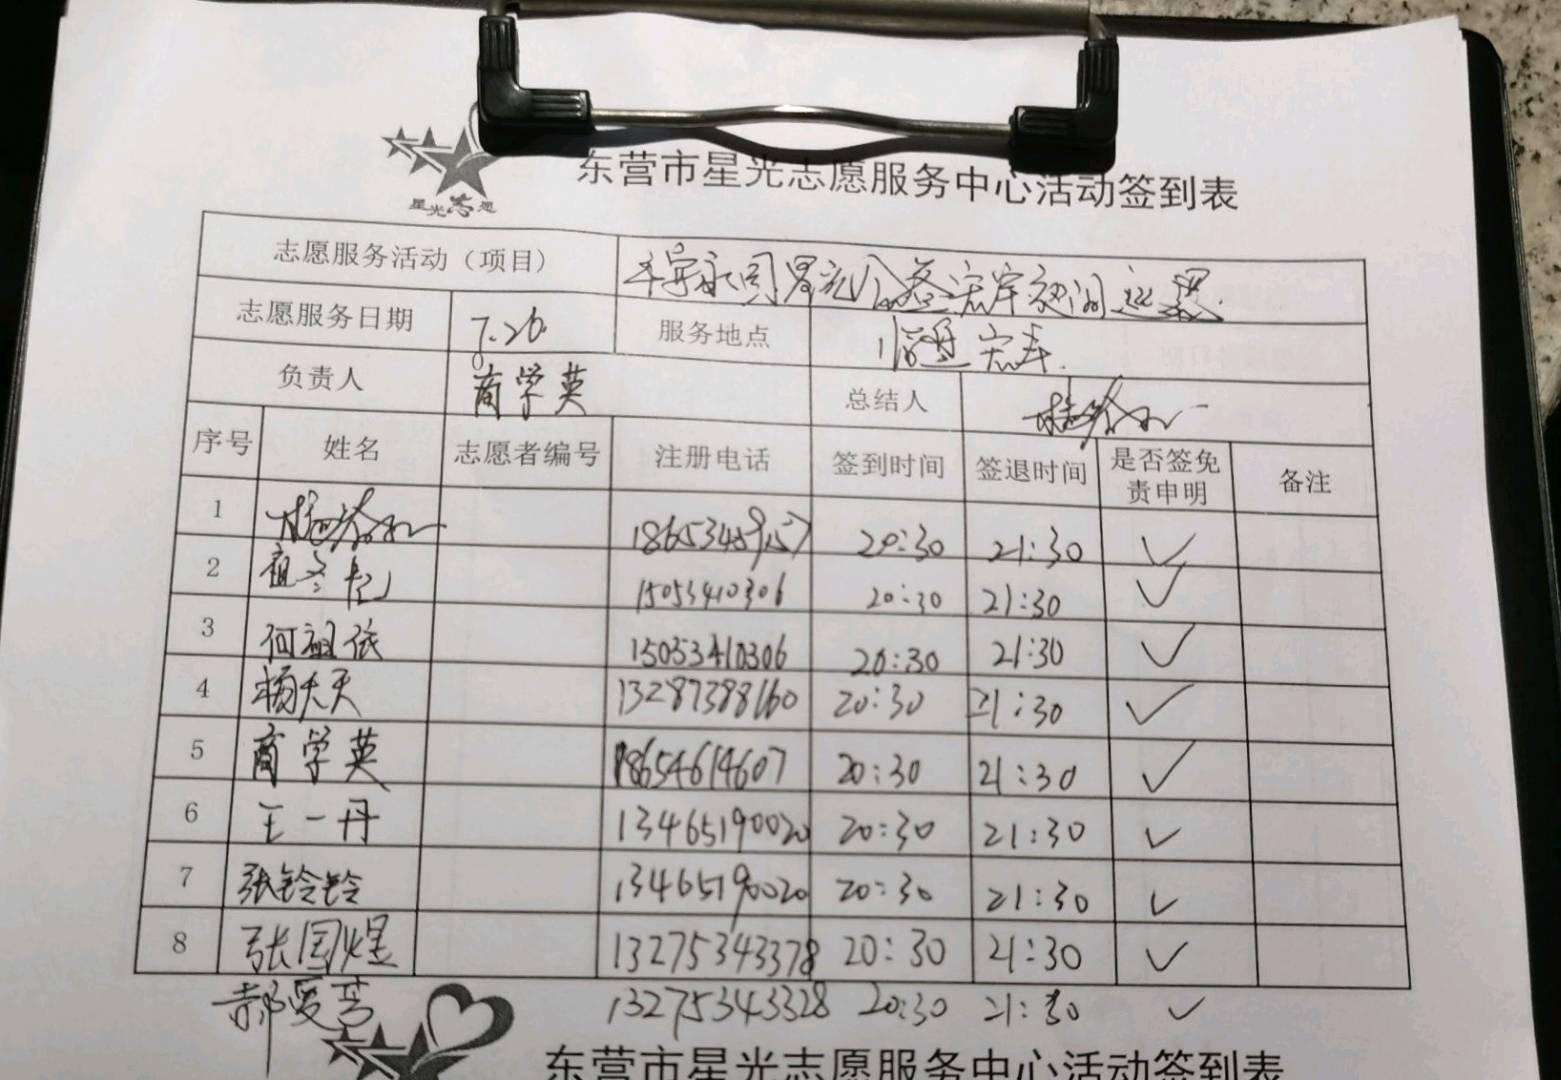 东营市星光志愿服务中心活动签到表
星光志愿
志愿服务活动（项目）
志愿服务日期 7.26 服务地点
负责人 商学英 总结人
序号 姓名 志愿者编号 注册电话 签到时间 签退时间 是否签免责申明 备注
1 20:30 21:30 ✓
2 15053410306 20:30 21:30 ✓
3 何祖依 15053410306 20:30 21:30 ✓
4 杨天天 13287388160 20:30 21:30 ✓
5 商学英 18654614607 20:30 21:30 ✓
6 王一丹 13465190020 20:30 21:30 ✓
7 张铃铃 13465190020 20:30 21:30 ✓
8 张国煜 13275343378 20:30 21:30 ✓
郝爱芳 13275343328 20:30 21:30 ✓
东营市星光志愿服务中心活动签到表